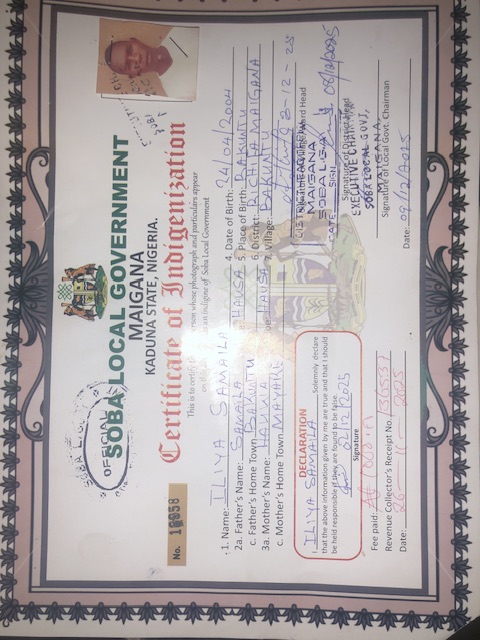 OFFICIAL
SOBA LOCAL GOVERNMENT
MAIGANA
KADUNA STATE, NIGERIA.
Certificate of Indigenization
This is to certify
person whose photograph and particulars appear
on the
is an indigine of Soba Local Government
No.
1. Name: ILIYA SAMAILA 4. Date of Birth: 24/04/2004
2a. Father's Name: SAMAILA HAUSA 5. Place of Birth: BAKUNTU
c. Father's Home Town BAKUNTU 6. District: MAIGANA
3a. Mother's Name: HAUSA 7. Village: BAKUNTU
c. Mother's Home Town
DECLARATION
I ILIYA SAMAILA Solemnly declare
that the above information given by me are true and that I should
be held responsible if they are found to be false.
02/12/2025
Signature
MAIGANA
SOBA L.G.A
DATE SIGN 08/12/2025
Signature of District Head
EXECUTIVE CHAIRMAN
SOBA LOCAL GOVT,
MAIGANA,
Signature of Local Govt. Chairman
Fee paid:
Revenue Collector's Receipt No.
Date: 26-11-2025
Date: 09/12/2025